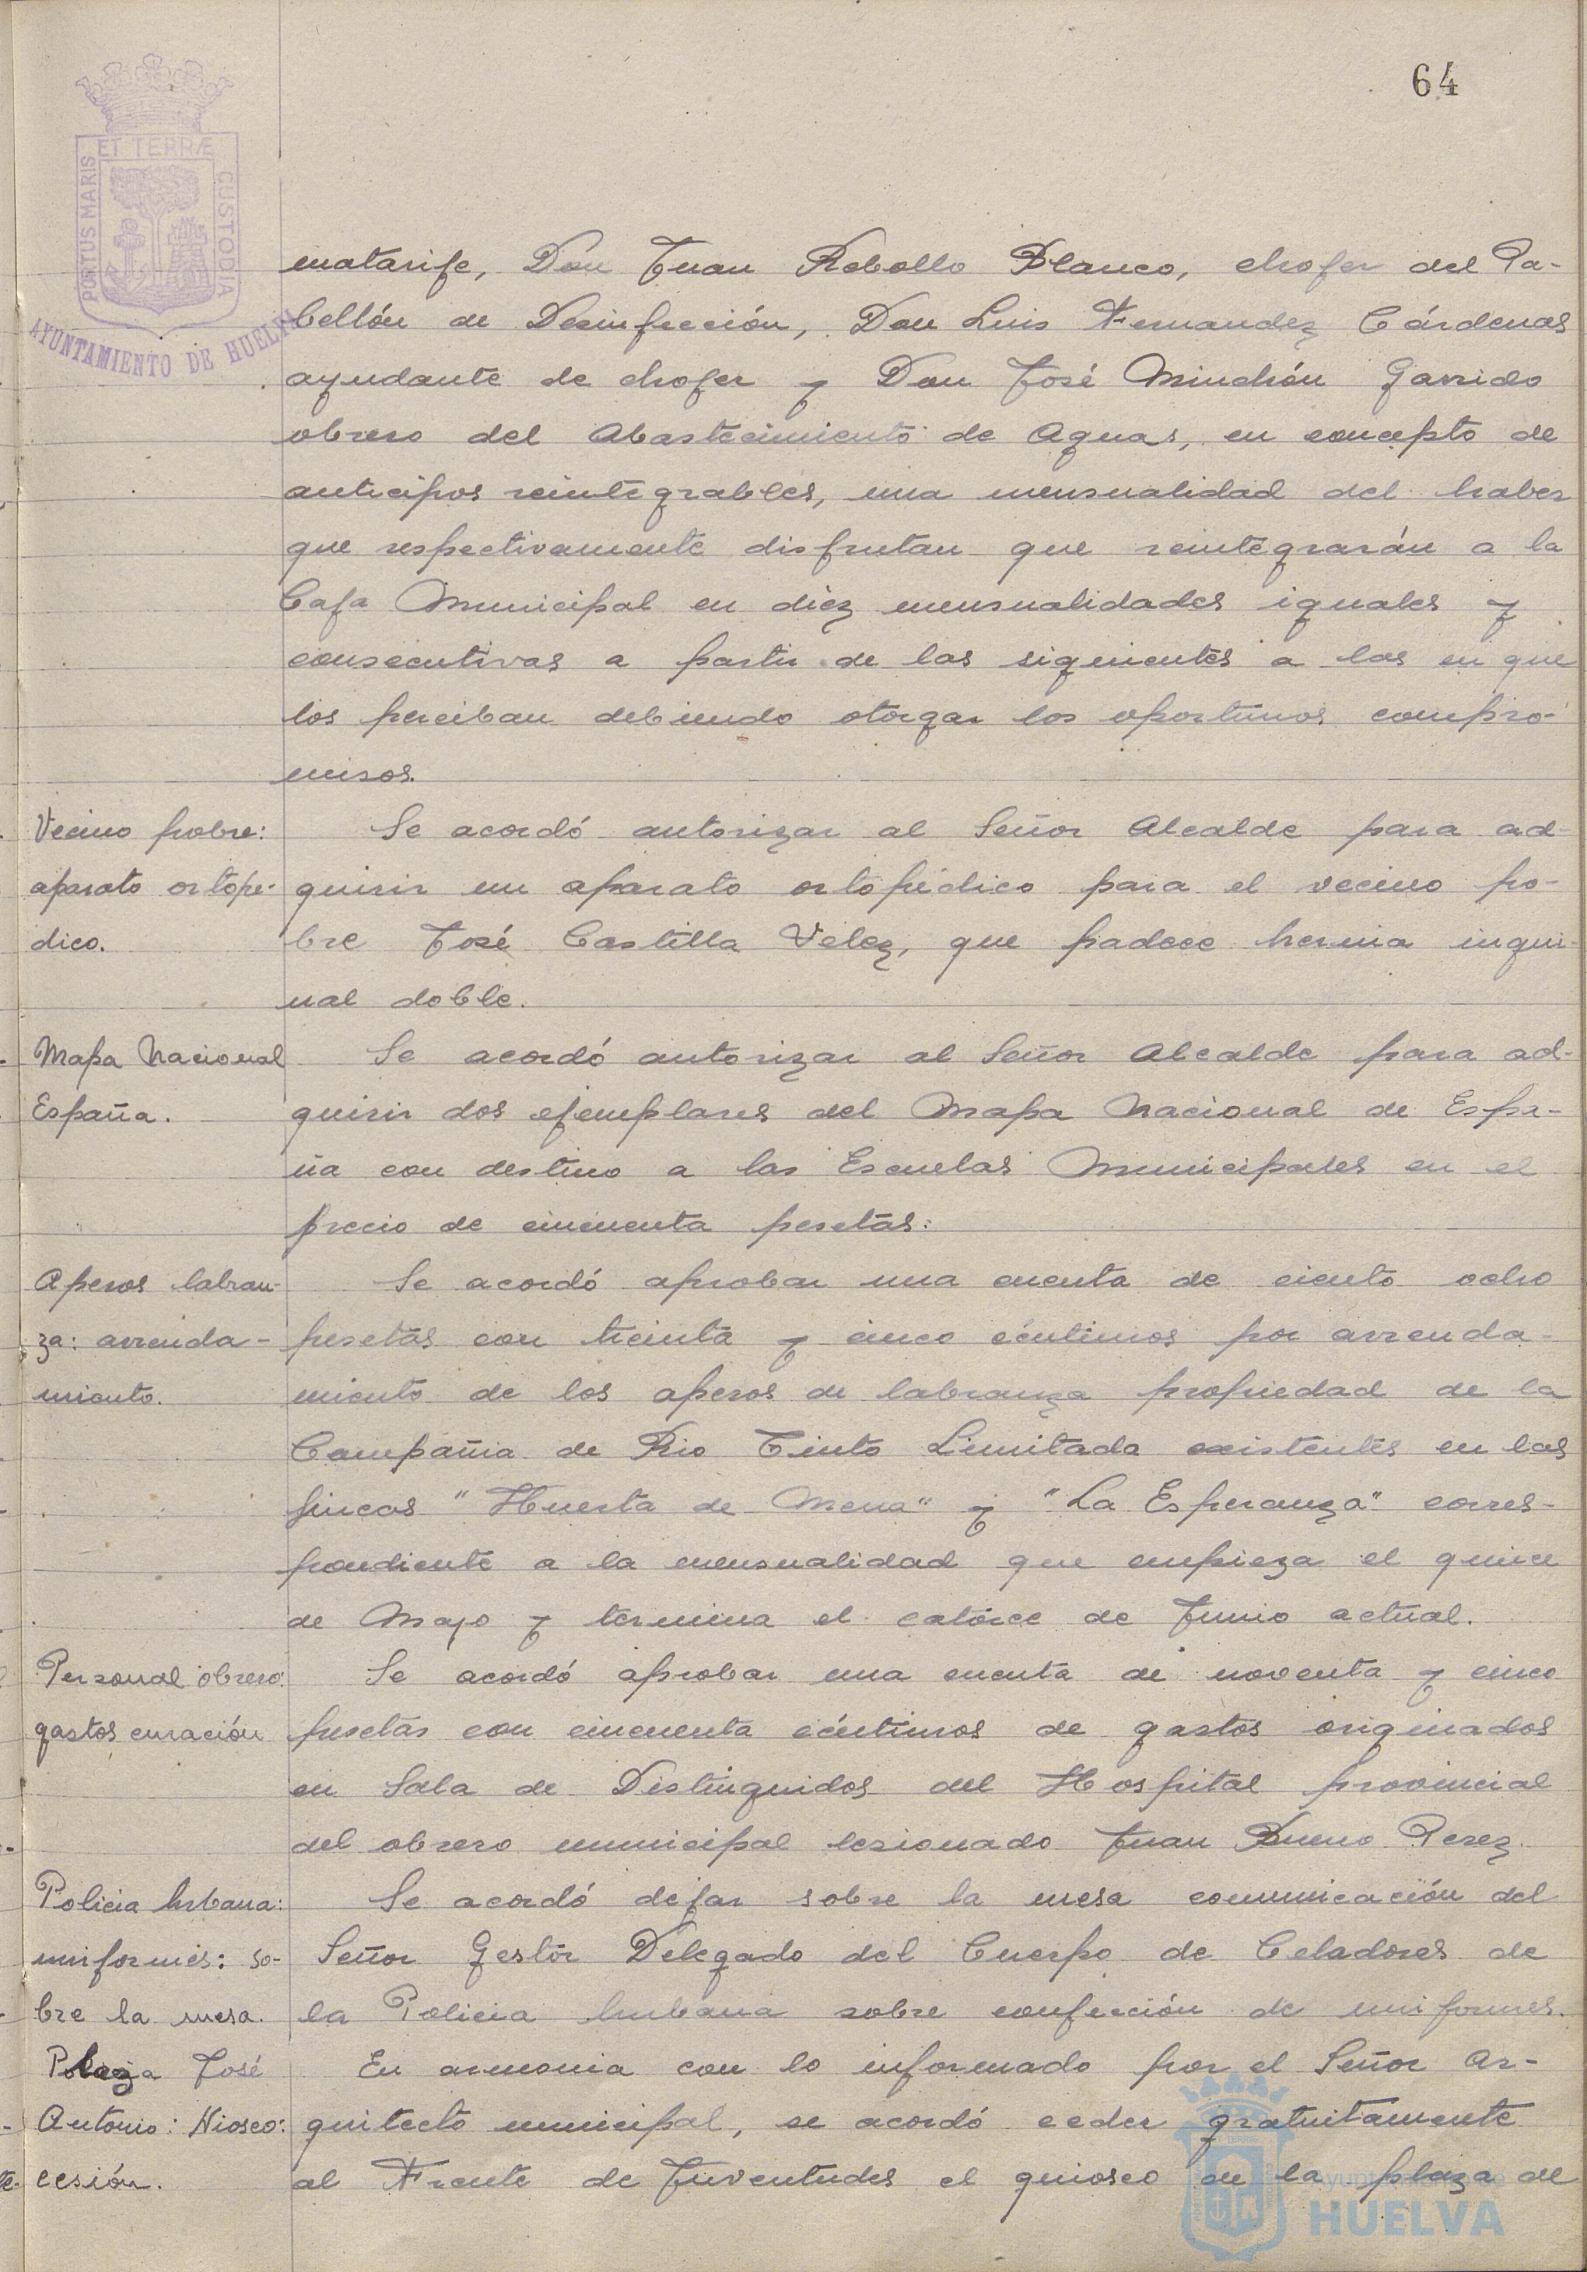 64
PORTUS MARIS ET TERRÆ CUSTODIA
AYUNTAMIENTO DE HUELVA
matarife, Don Juan Rebollo Blanco, chofer del Pa-
bellón de Desinfección, Don Luis Fernandez Cárdenas
ayudante de chofer y Don José Minchón Garrido
obrero del Abastecimiento de Aguas, en concepto de
anticipos reintegrables, una mensualidad del haber
que respectivamente disfrutan que reintegrarán a la
Caja Municipal en diez mensualidades iguales y
consecutivas a partir de las siguientes a las en que
los perciban debiendo otorgar los oportunos compro-
misos.
Vecino pobre:
aparato ortopé-
dico.
Se acordó autorizar al Señor Alcalde para ad-
quirir un aparato ortopédico para el vecino po-
bre José Castilla Velez, que padece hernia ingui-
nal doble.
Mapa Nacional
España.
Se acordó autorizar al Señor Alcalde para ad-
quirir dos ejemplares del Mapa Nacional de Espa-
ña con destino a las Escuelas Municipales en el
precio de cincuenta pesetas.
Aperos labran-
za: arrenda-
miento.
Se acordó aprobar una cuenta de ciento ocho
pesetas con treinta y cinco céntimos por arrenda-
miento de los aperos de labranza propiedad de la
Compañia de Rio Tinto Limitada existentes en las
fincas "Huerta de Mena" y "La Esperanza" corres-
pondiente a la mensualidad que empieza el quince
de Mayo y termina el catorce de Junio actual.
Personal obrero:
gastos curación
Se acordó aprobar una cuenta de noventa y cinco
pesetas con cincuenta céntimos de gastos originados
en Sala de Distinguidos del Hospital provincial
del obrero municipal lesionado Juan Bueno Perez.
Policia Urbana:
uniformes: so-
bre la mesa.
Se acordó dejar sobre la mesa comunicación del
Señor Gestor Delegado del Cuerpo de Celadores de
la Policia Urbana sobre confección de uniformes.
Plaza José
Antonio: Kiosco:
cesión.
En armonia con lo informado por el Señor Ar-
quitecto municipal, se acordó ceder gratuitamente
al Frente de Juventudes el quiosco de la plaza de
Ayuntamiento de
HUELVA